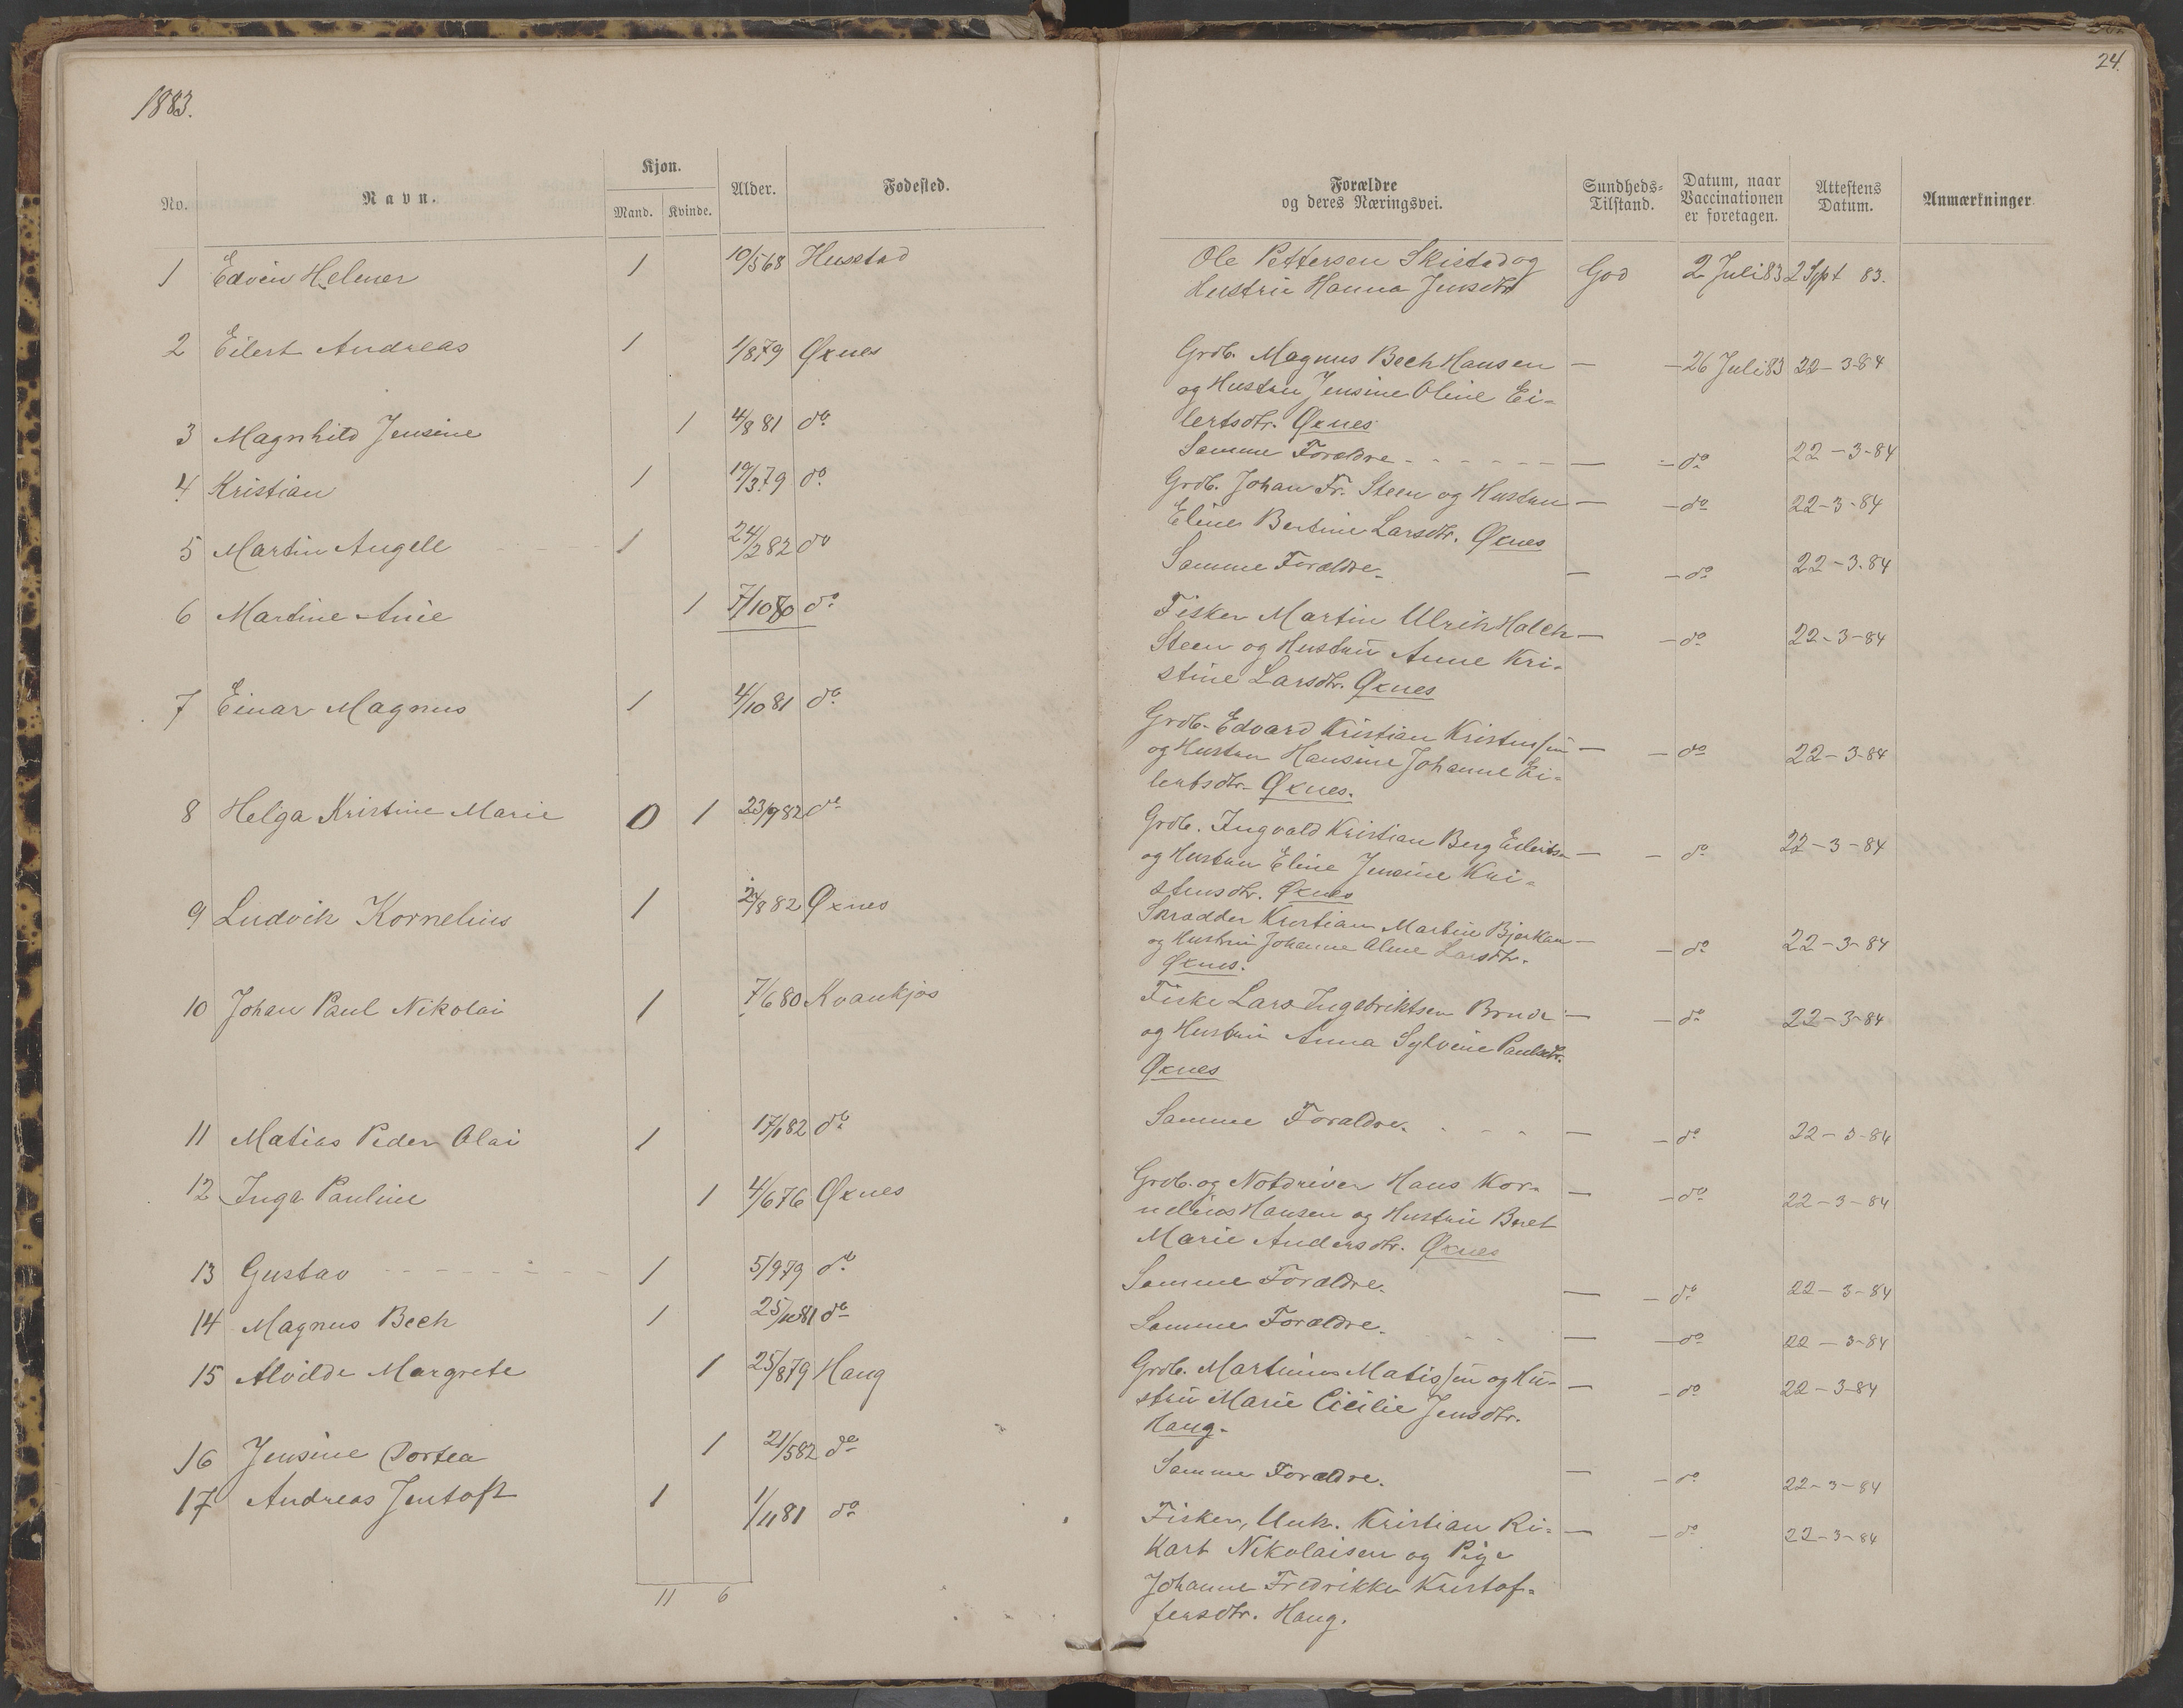 1883.
24.
No.
Navn.
Kjøn.
Mand. Kvinde.
Alder.
Fødested.
Forældre
og deres Næringsvei.
Sundheds-
Tilstand.
Datum, naar
Vaccinationen
er foretagen.
Attestens
Datum.
Anmærkninger.
1 Edvin Helmer 1 10/5 68 Husstad
Ole Pettersen Skistad og God 2 Juli 83 2 Spt 83.
Hustru Hanna Jensdtr
2 Eilert Andreas 1 1/8 79 Øxnes
Grdb. Magnus Bech Hansen — — 26 Juli 83 22-3-84
og Hustru Jensine Oline Ei-
lertsdtr. Øxnes
3 Magnhild Jensine 1 4/8 81 do
Samme Forældre - - - - - - — - do 22-3-84
4 Kristian 1 19/3 79 do
Grdb. Johan Fr. Steen og Hustru — - do 22-3-84
Eline Bertine Larsdtr. Øxnes
5 Martin Angell 1 24/2 82 do
Samme Forældre. — - do 22-3-84
6 Martine Anie 1 7/10 80 do
Fisker Martin Ulrik Holck — - do 22-3-84
Steen og Hustru Anne Kri-
stine Larsdtr. Øxnes
7 Einar Magnus 1 4/10 81 do
Grdb. Edvard Kristian Kristenssen — - do 22-3-84
og Hustru Hansine Johanne Ei-
lertsdtr. Øxnes.
8 Helga Kristine Marie 0 1 23/9 82 do
Grdb. Ingvald Kristian Berg Eilertsen — - do 22-3-84
og Hustru Eline Jensine Kri-
stensdtr. Øxnes
9 Ludvik Kornelius 1 2/8 82 Øxnes
Skrædder Kristian Martin Bjerkan — - do 22-3-84
og Hustru Johanne Oline Larsdtr.
Øxnes.
10 Johan Paul Nikolai 1 7/6 80 Kvankjos
Fisker Lars Ingebriktsen — - do 22-3-84
og Hustru Anna Sylvine Paulsdtr.
Øxnes
11 Matias Peder Olai 1 17/1 82 do
Samme Forældre. - - - — - do 22-3-84
12 Inga Pauline 1 4/6 76 Øxnes
Grdb. og Notdriver Hans Kor- — - do 22-3-84
nelius Hansen og Hustru Beret
Marie Andersdtr. Øxnes
13 Gustav - - - - - - 1 5/9 79 do
Samme Forældre. — - do 22-3-84
14 Magnus Bech 1 25/10 81 do
Samme Forældre. - - - — - do 22-3-84
15 Alvilde Margrete 1 25/8 79 Haug
Grdb. Martinus Matissen og Hu- — - do 22-3-84
stru Marie Cicilie Jensdtr.
Haug.
16 Jensine Dortea 1 21/5 82 do
Samme Forældre. — - do 22-3-84
17 Andreas Jentoft 1 1/11 81 do
Fisker, Unk. Kristian Ri- — - do 22-3-84
kart Nikolaisen og Pige
Johanne Fredrikke Kristof-
fersdtr. Haug.
11 6